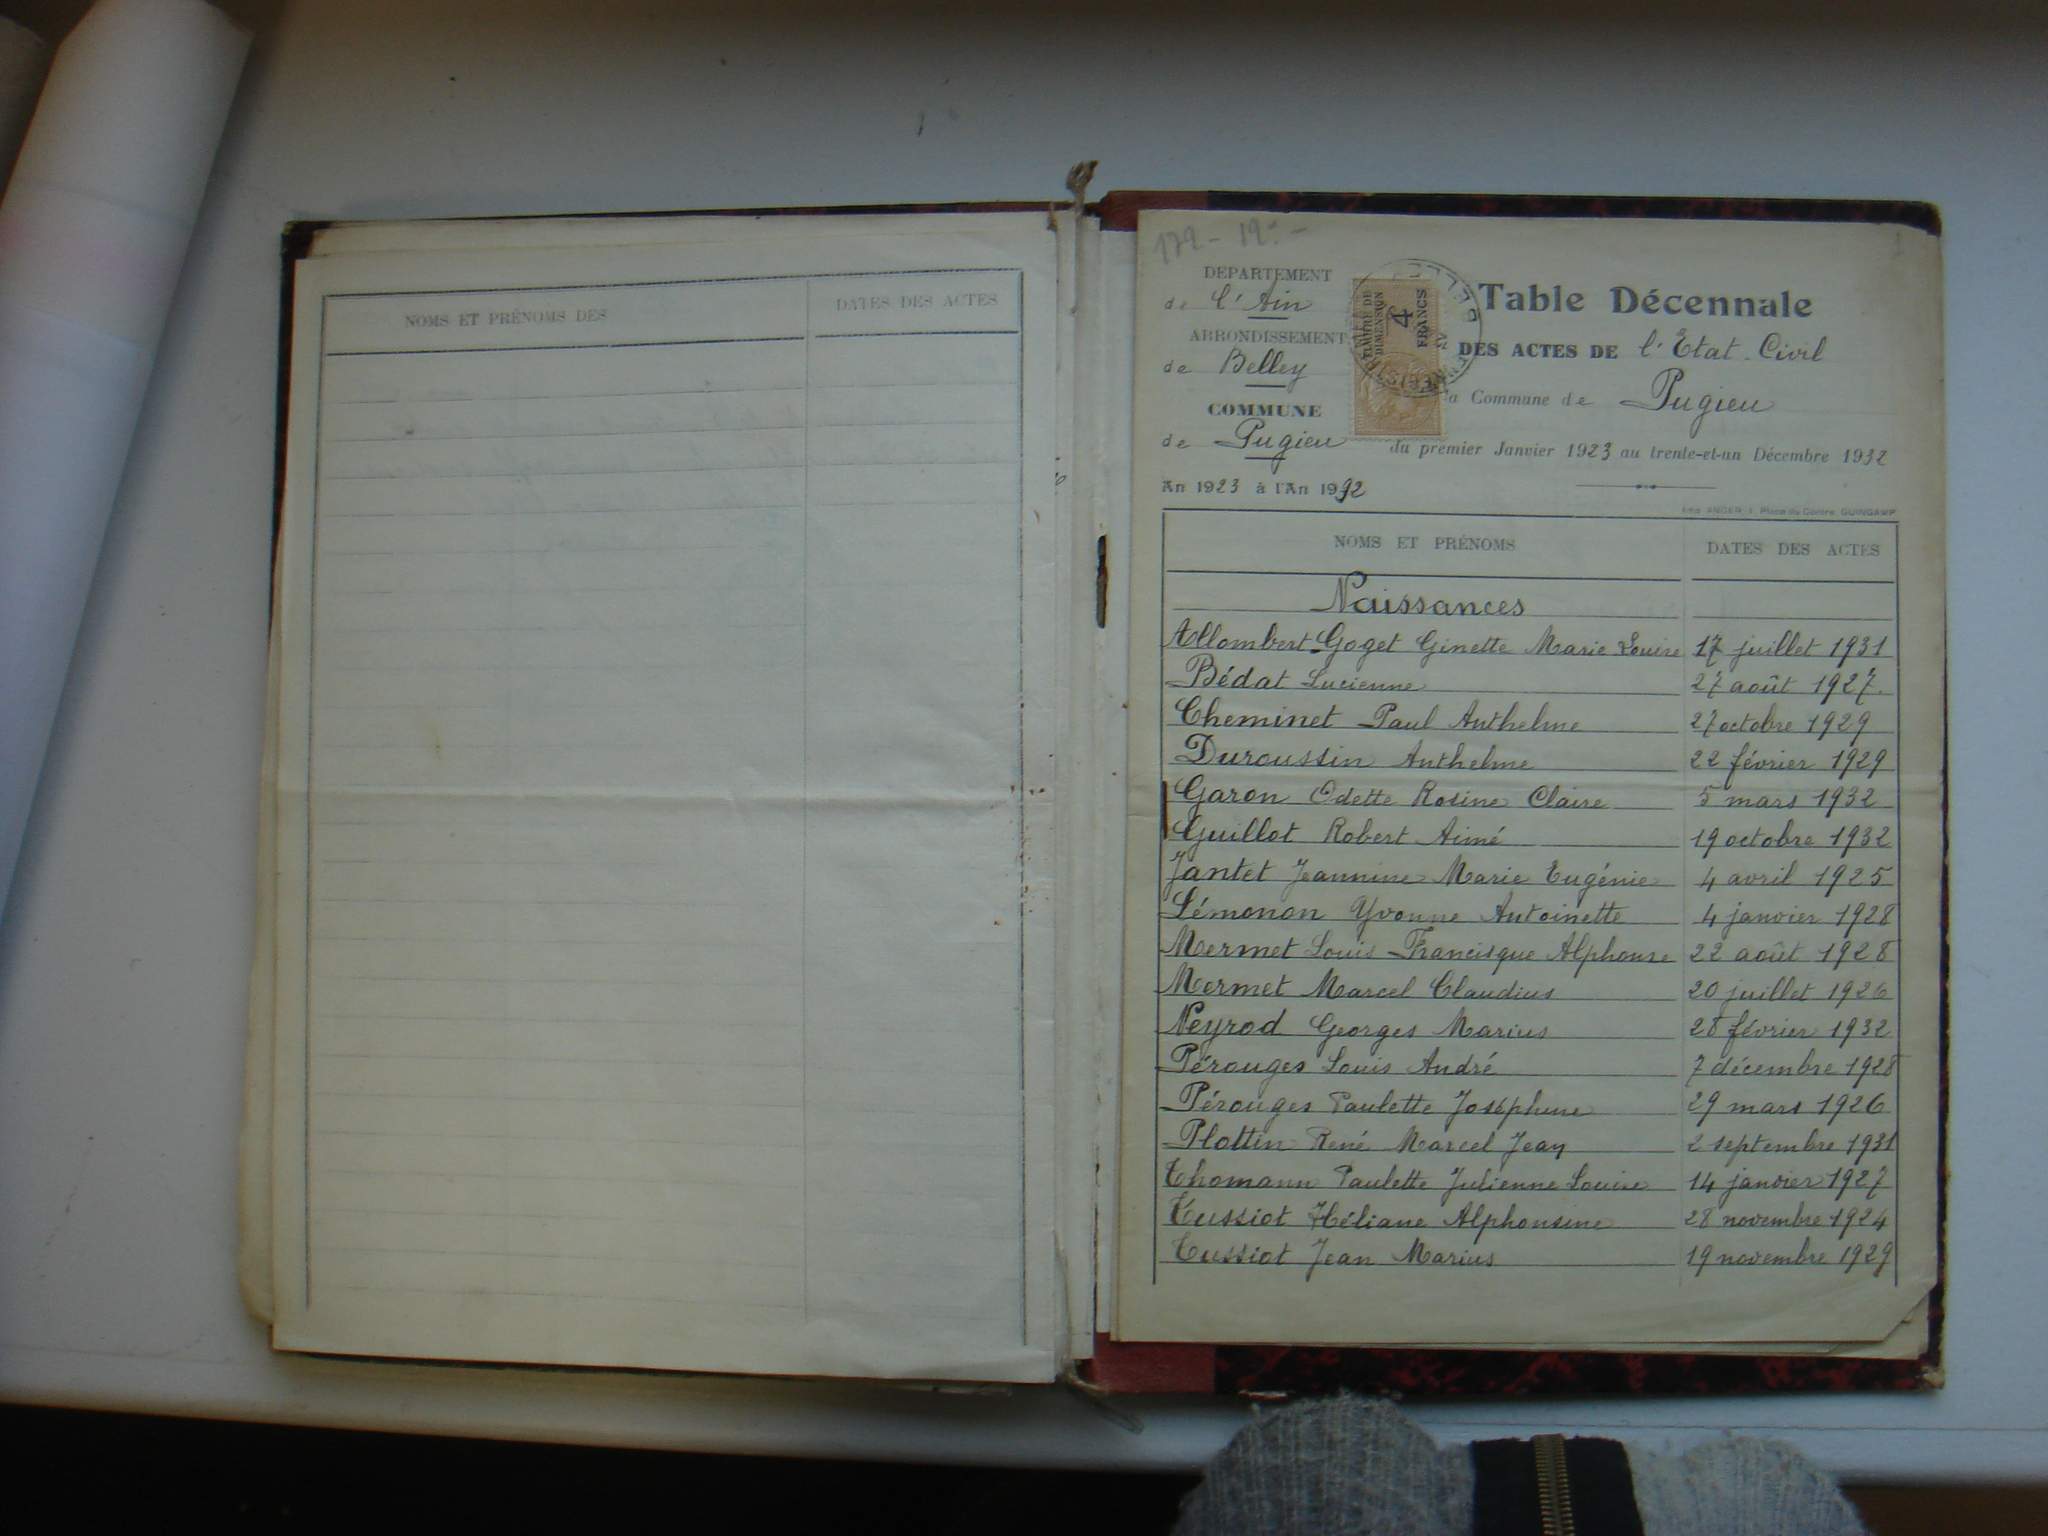 NOMS ET PRÉNOMS DES
DATES DES ACTES
DEPARTEMENT
de l'Ain
ARRONDISSEMENT
de Belley
COMMUNE
de Pugieu
An 1923 à l'An 1932
TIMBRE DE
DIMENSION
4
FRANCS
Table Décennale
DES ACTES DE l'Etat-Civil
a Commune de Pugieu
du premier Janvier 1923 au trente-et-un Décembre 1932
NOMS ET PRÉNOMS DATES DES ACTES
Naissances
Allombert-Goget Ginette Marie Louise 17 juillet 1931
Bédat Lucienne 27 août 1927.
Cheminet Paul Anthelme 27 octobre 1929
Duroussin Anthelme 22 février 1929
Garon Odette Rosine Claire 5 mars 1932
Guillot Robert Aimé 19 octobre 1932
Jantet Jeannine Marie Eugénie 4 avril 1925
Lémonon Yvonne Antoinette 4 janvier 1928
Mermet Louis Francisque Alphonse 22 août 1928
Mermet Marcel Claudius 20 juillet 1926
Neyrod Georges Marius 28 février 1932
Pérouges Louis André 7 décembre 1928
Pérouges Paulette Joséphine 29 mars 1926
Plottin René Marcel Jean 2 septembre 1931
Thomann Paulette Julienne Louise 14 janvier 1927
Tussiot Héliane Alphonsine 28 novembre 1924
Tussiot Jean Marius 19 novembre 1929